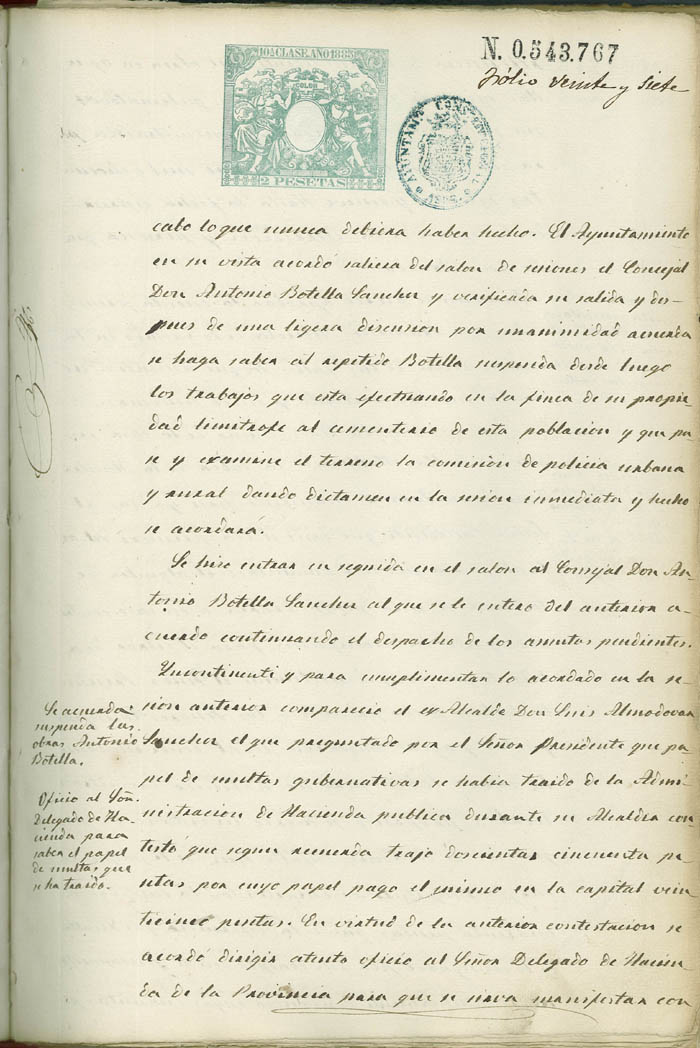 10ª CLASE. AÑO 1885
COLON
2 PESETAS
N. 0.543.767
Fólio veinte y siete
AYUNTAMTO CONSTITUCIONAL
cabo lo que nunca debiera haber hecho. El Ayuntamiento
en su vista acordó saliera del salon de sesiones el Concejal
Don Antonio Botella Sanchez y verificada su salida y des-
pues de una ligera discusion por unanimidad acuerda
se haga saber al repetido Botella suspenda desde luego
los trabajos que esta efectuando en la finca de su propie-
dad limitrofe al cementerio de esta poblacion y que pa-
se y examine el terreno la comisión de policia urbana
y rural dando dictamen en la sesion inmediata y hecho
se acordará.
Se hizo entrar en seguida en el salon al Consejal Don An-
tonio Botella Sanchez al que se le entero del anterior a-
cuerdo continuando el despacho de los asuntos pendientes.
Yncontinenti y para cumplimentar lo acordado en la se-
sion anterior comparecio el ex Alcalde Don Luis Almodovar
Sanchez el que preguntado por el Señor Presidente que pa-
pel de multas gubernativas se habia traido de la Admi-
nistracion de Hacienda publica durante su Alcaldia con-
testó que segun recuerda trajo doscientas cincuenta pe-
setas por cuyo papel pago el mismo en la capital vein-
ticinco pesetas. En virtud de la anterior contestacion se
acordó dirigir atento oficio al Señor Delegado de Hacien-
da de la Provincia para que se sirva manifestar con
Se acuerda
suspenda las
obras Antonio
Botella.
Oficio al Señ.
Delegado de Ha-
cienda para
saber el papel
de multas que
se ha traido.